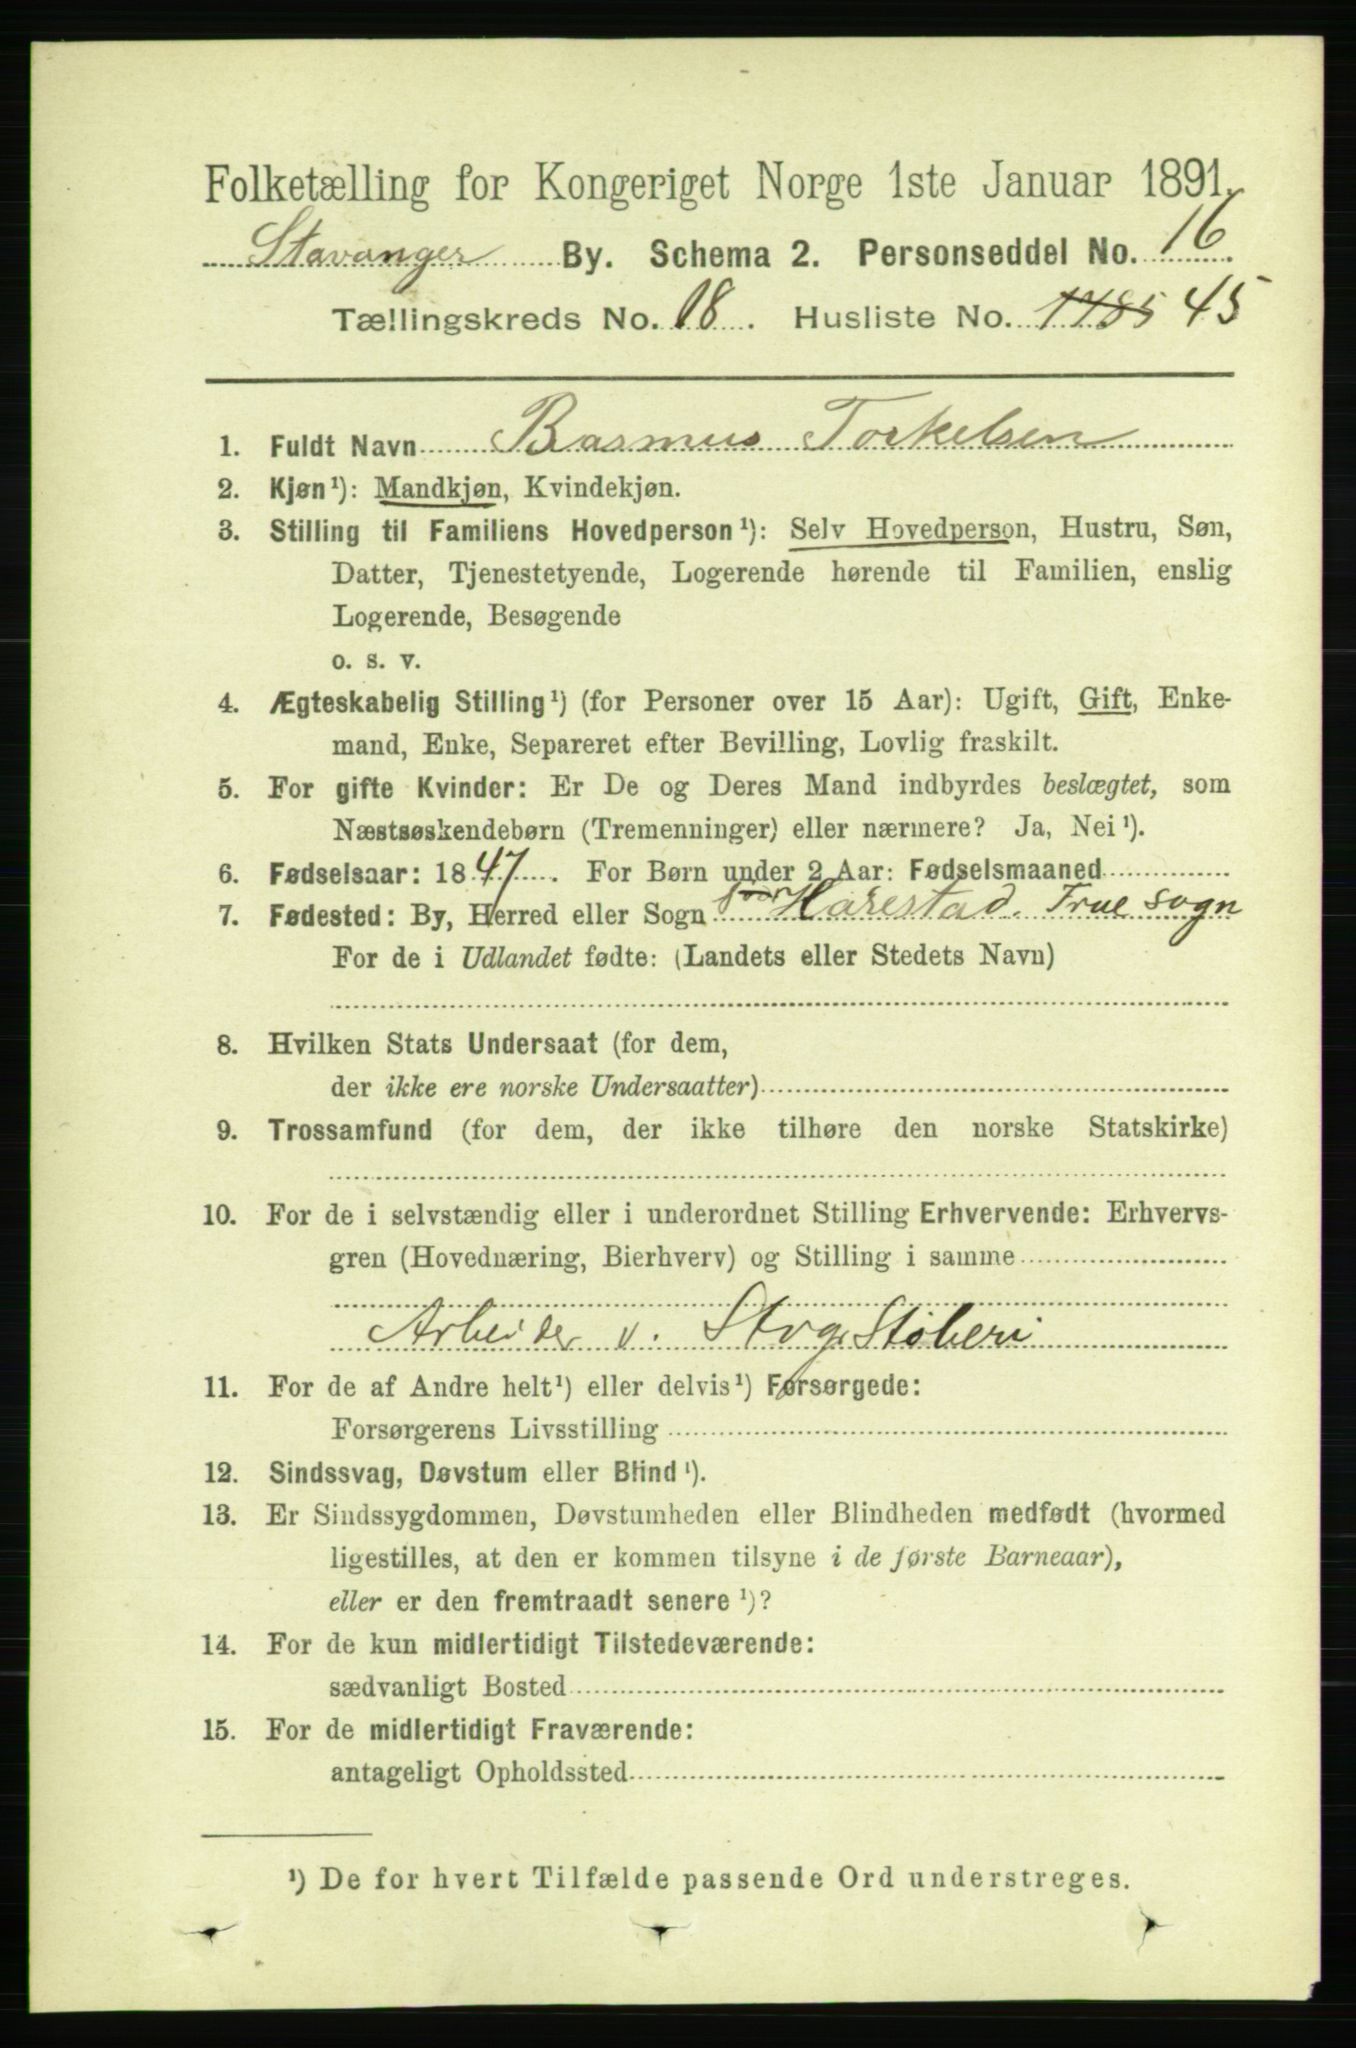 Folketælling for Kongeriget Norge 1ste Januar 1891.
Stavanger By. Schema 2. Personseddel No. 16
Tællingskreds No. 18. Husliste No. 1485 45
1. Fuldt Navn Rasmus Torkelsen
2. Kjøn¹): Mandkjøn, Kvindekjøn.
3. Stilling til Familiens Hovedperson¹): Selv Hovedperson, Hustru, Søn,
Datter, Tjenestetyende, Logerende hørende til Familien, enslig
Logerende, Besøgende
o. s. v.
4. Ægteskabelig Stilling¹) (for Personer over 15 Aar): Ugift, Gift, Enke-
mand, Enke, Separeret efter Bevilling, Lovlig fraskilt.
5. For gifte Kvinder: Er De og Deres Mand indbyrdes beslægtet, som
Næstsøskendebørn (Tremenninger) eller nærmere? Ja, Nei¹).
6. Fødselsaar: 1847. For Børn under 2 Aar: Fødselsmaaned
7. Fødested: By, Herred eller Sogn Harestad. Frue sogn
For de i Udlandet fødte: (Landets eller Stedets Navn)
8. Hvilken Stats Undersaat (for dem,
der ikke ere norske Undersaatter)
9. Trossamfund (for dem, der ikke tilhøre den norske Statskirke)
10. For de i selvstændig eller i underordnet Stilling Erhvervende: Erhvervs-
gren (Hovednæring, Bierhverv) og Stilling i samme
Arbeider v. Stvgr Støberi
11. For de af Andre helt¹) eller delvis¹) Forsørgede:
Forsørgerens Livsstilling
12. Sindssvag, Døvstum eller Blind¹).
13. Er Sindssygdommen, Døvstumheden eller Blindheden medfødt (hvormed
ligestilles, at den er kommen tilsyne i de første Barneaar),
eller er den fremtraadt senere¹)?
14. For de kun midlertidigt Tilstedeværende:
sædvanligt Bosted
15. For de midlertidigt Fraværende:
antageligt Opholdssted
¹) De for hvert Tilfælde passende Ord understreges.